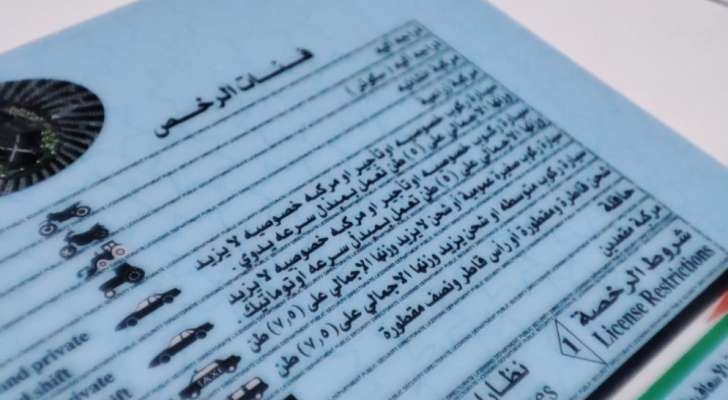 فئات الرخص
دراجة آلية
دراجة آلية ( سكوتر )
مركبة انشائية
مركبة زراعية
سيارة ركوب خصوصية او تأجير او مركبة خصوصية لا يزيد
وزنها الاجمالي على (٥) طن تعمل بمبدل سرعة يدوي .
سيارة ركوب خصوصية او تأجير او مركبة خصوصية لا يزيد
وزنها الاجمالي على (٥) طن تعمل بمبدل سرعة اوتوماتيك
سيارة ركوب صغيرة عمومية او شحن لا يزيد وزنها الإجمالي على (٧,٥) طن
سيارة ركوب متوسطة او شحن يزيد وزنها الاجمالي على (٧,٥) طن
شحن قاطرة ومقطورة أو رأس قاطر ونصف مقطورة
حافلة
مركبة مقعدين
شروط الرخصة
License Restrictions
1
نظارات
es
and private
l shift
private
shift
TAXI